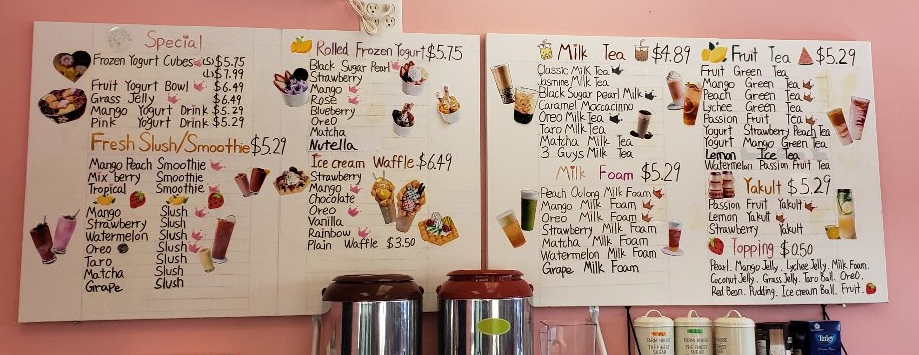 Special
Frozen Yogurt Cubes (S) $5.75
(L) $7.99
Fruit Yogurt Bowl $6.49
Grass Jelly $6.49
Mango Yogurt Drink $5.29
Pink Yogurt Drink $5.29
Fresh Slush/Smoothie $5.29
Mango Peach Smoothie
Mix berry Smoothie
Tropical Smoothie
Mango Slush
Strawberry Slush
Watermelon Slush
Oreo Slush
Taro Slush
Matcha Slush
Grape Slush
Rolled Frozen Yogurt $5.75
Black Sugar Pearl
Strawberry
Mango
Rose
Blueberry
Oreo
Matcha
Nutella
Ice cream Waffle $6.49
Strawberry
Mango
Chocolate
Oreo
Vanilla
Rainbow
Plain Waffle $3.50
Milk Tea $4.89
Classic Milk Tea
Jasmine Milk Tea
Black Sugar pearl Milk
Caramel Moccacino
Oreo Milk Tea
Taro Milk Tea
Matcha Milk Tea
3 Guys Milk Tea
Milk Foam $5.29
Peach Oolong Milk Foam
Mango Milk Foam
Oreo Milk Foam
Strawberry Milk Foam
Matcha Milk Foam
Watermelon Milk Foam
Grape Milk Foam
Fruit Tea $5.29
Fruit Green Tea
Mango Green Tea
Peach Green Tea
Lychee Green Tea
Passion Fruit Tea
Yogurt Strawberry Peach Tea
Yogurt Mango Green Tea
Lemon Ice Tea
Watermelon Passion Fruit Tea
Yakult $5.29
Passion Fruit Yakult
Lemon Yakult
Strawberry Yakult
Topping $0.50
Pearl, Mango Jelly, Lychee Jelly, Milk Foam,
Coconut Jelly, Grass Jelly, Taro Ball, Oreo,
Red Bean, Pudding, Ice cream Ball, Fruit.
Tetley